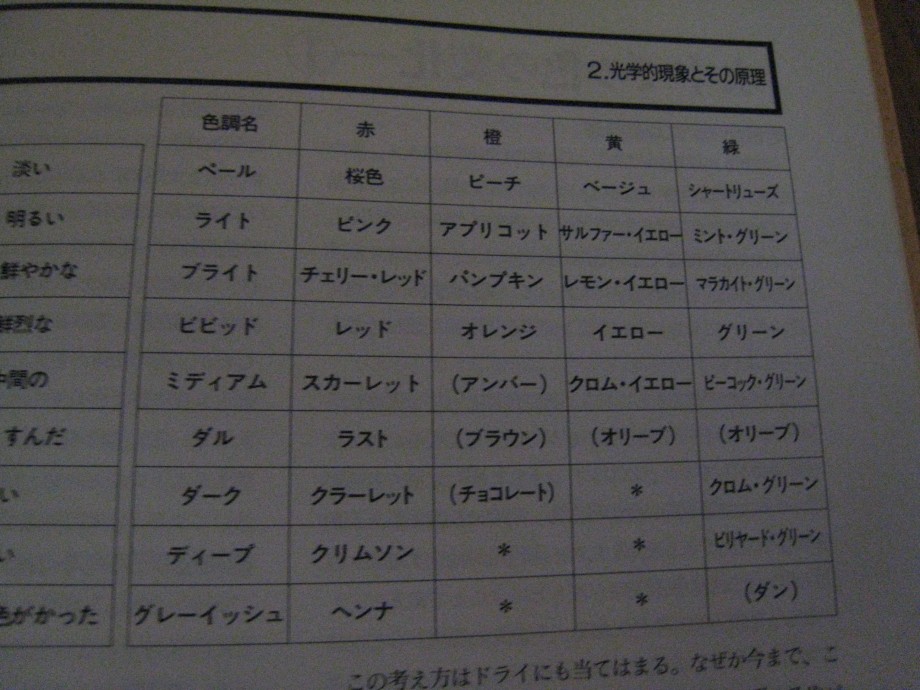 2.光学的現象とその原理
色調名 赤 橙 黄 緑
淡い ペール 桜色 ピーチ ベージュ シャートリューズ
明るい ライト ピンク アプリコット サルファー・イエロー ミント・グリーン
鮮やかな ブライト チェリー・レッド パンプキン レモン・イエロー マラカイト・グリーン
鮮烈な ビビッド レッド オレンジ イエロー グリーン
中間の ミディアム スカーレット (アンバー) クロム・イエロー ピーコック・グリーン
すんだ ダル ラスト (ブラウン) (オリーブ) (オリーブ)
い ダーク クラーレット (チョコレート) * クロム・グリーン
い ディープ クリムソン * * ビリヤード・グリーン
色がかった グレーイッシュ ヘンナ * * (ダン)
この考え方はドライにも当てはまる。なぜか今まで、こ